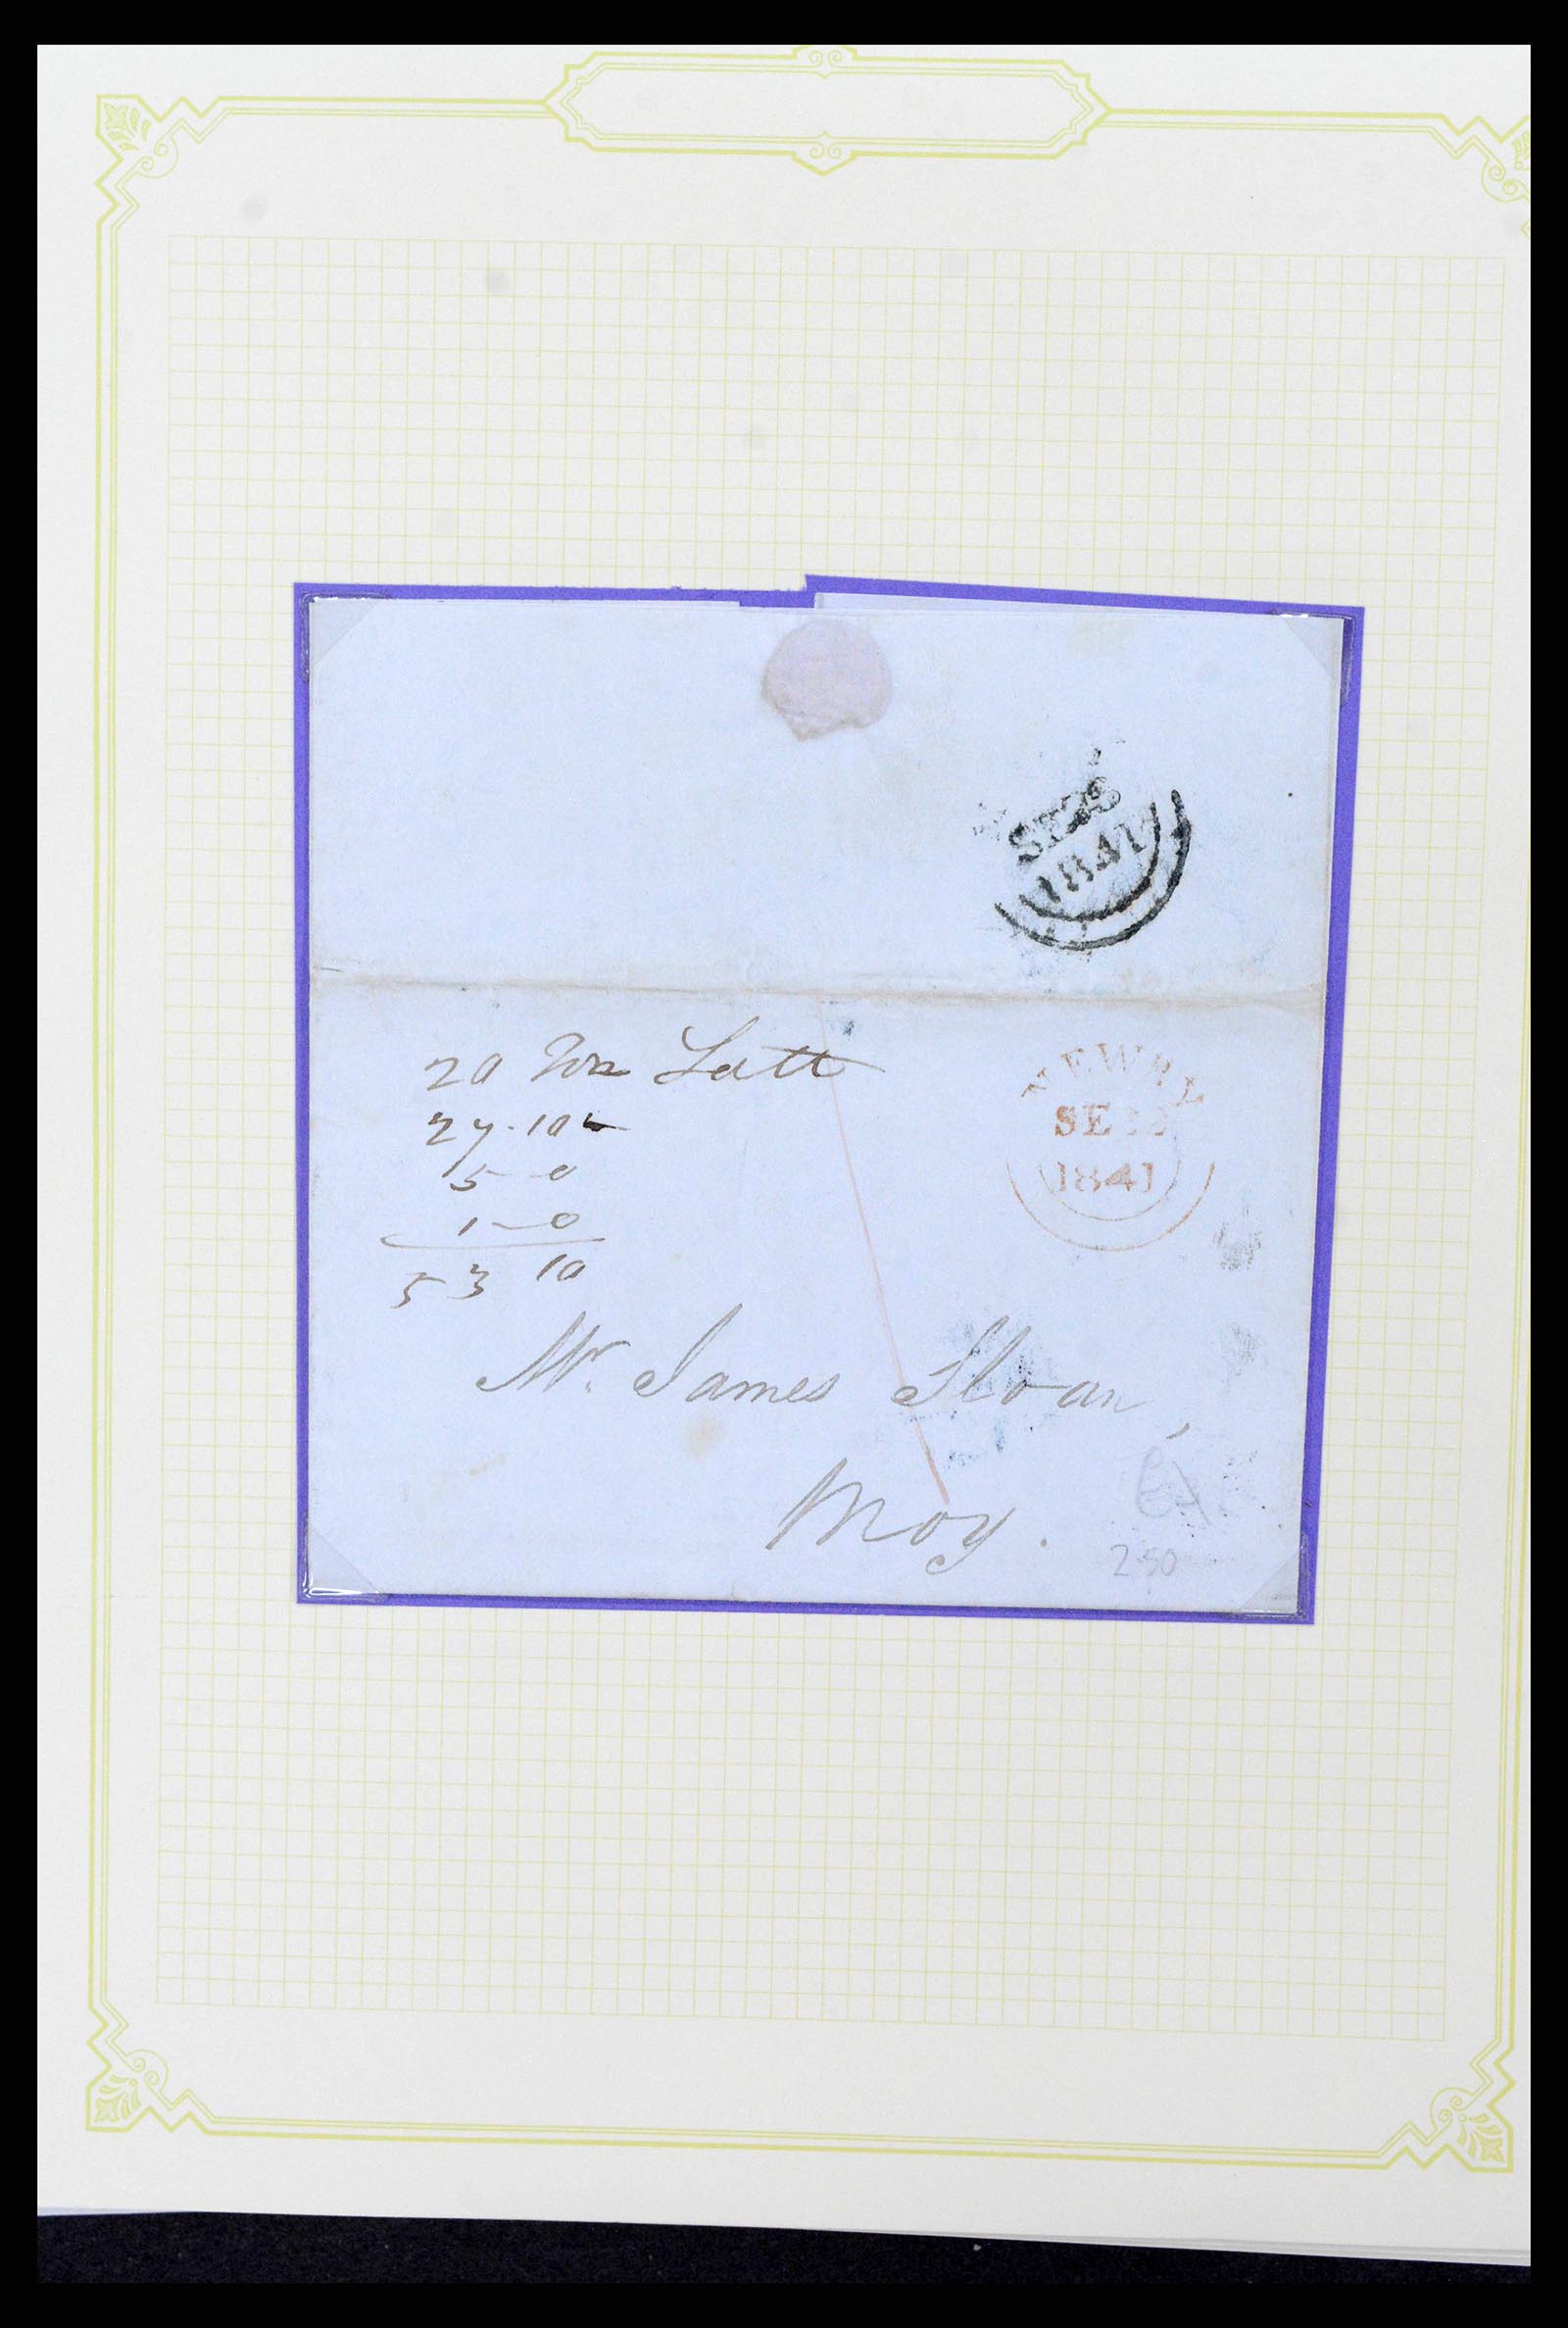 1841
20 Ton Salt
27.10
5 0
1 0
53 10
NEWRY
SE 22
1841
Mr. James Sloan,
Moy.
2.50